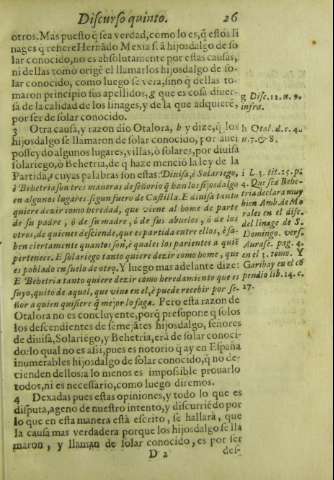 Discurso quinto. 26
otros. Mas puesto q̃ sea verdad, como lo es, q̃ estos li
nages q̃ refiere Hernãdo Mexia sõ hijosdalgo de so
lar conocido, no es absolutamente por estas causas,
ni dellas tomo origẽ el llamarlos hijosdalgo de so-
lar conocido, como luego se vera, sino q̃ dellas to-
maron principio sus apellidos, g que es cosa diuer-
sa de la calidad de los linages, y de la que adquirẽ,
por ser de solar conocido.
g Disc. 12. n. 9.
infra.
3 Otra causa, y razon dio Otalora, h y dize, q̃ los
hijosdalgo se llamaron de solar conocido, por auer
posseydo algunos lugares, villas, ò solares, por diuisa
solariego, ò Behetria, de q̃ haze menciõ la ley de la
Partida, i cuyas palabras son estas: Diuisa, ò Solariego,
ò Behetria son tres maneras de señorio q̃ han los hijosdalgo
en algunos lugares segun fuero de Castilla. E diuisa tanto
quiere dezir como heredad, que viene al home de parte
de su padre, ò de su madre, ò de sus abuelos, ò de los
otros, de quien es desciende, que es partida entre ellos, è sa-
ben ciertamente quantos son, è quales los parientes a quiẽ
pertenece. E solariego tanto quiere dezir como home, que
es poblado en suelo de otro. Y luego mas adelante dize:
E Behetria tanto quiere dezir como heredamiento que es
suyo, quito de aquel, que viue en el, è puede recebir por se-
ñor a quien quisiere q̃ mejor lo faga. Pero esta razon de
Otalora no es concluyente, porq̃ presupone q̃ solos
los descendientes de semejãtes hijosdalgo, señores
de diuisa, Solariego, y Behetria, erã de solar conoci-
do: lo qual no es assi, pues es notorio q̃ ay en España
inumerables hijosdalgo de solar conocido, q̃ no de-
cienden dellos: a lo menos es impossible prouarlo
todos, ni es necessario, como luego diremos.
h Otal. d. c. 4.
n. 7. & 8.
i L. 3. tit. 25. p.
4. Que sea Behe-
tria declara muy
bien Amb. de Mo
rales en el disc.
del linage de S.
Domingo. vers.
pag. 4.
en el 1. tomo. Y
Garibay en el cõ
pendio lib. 14. c.
27.
4 Dexadas pues estas opiniones, y todo lo que es
disputa, ageno de nuestro intento, y discurriẽdo por
lo que en esta materia està escrito, se hallarà, que
la causa mas verdadera porque los hijosdalgo se lla
maron, y llaman de solar conocido, es por ser
D 2 des-